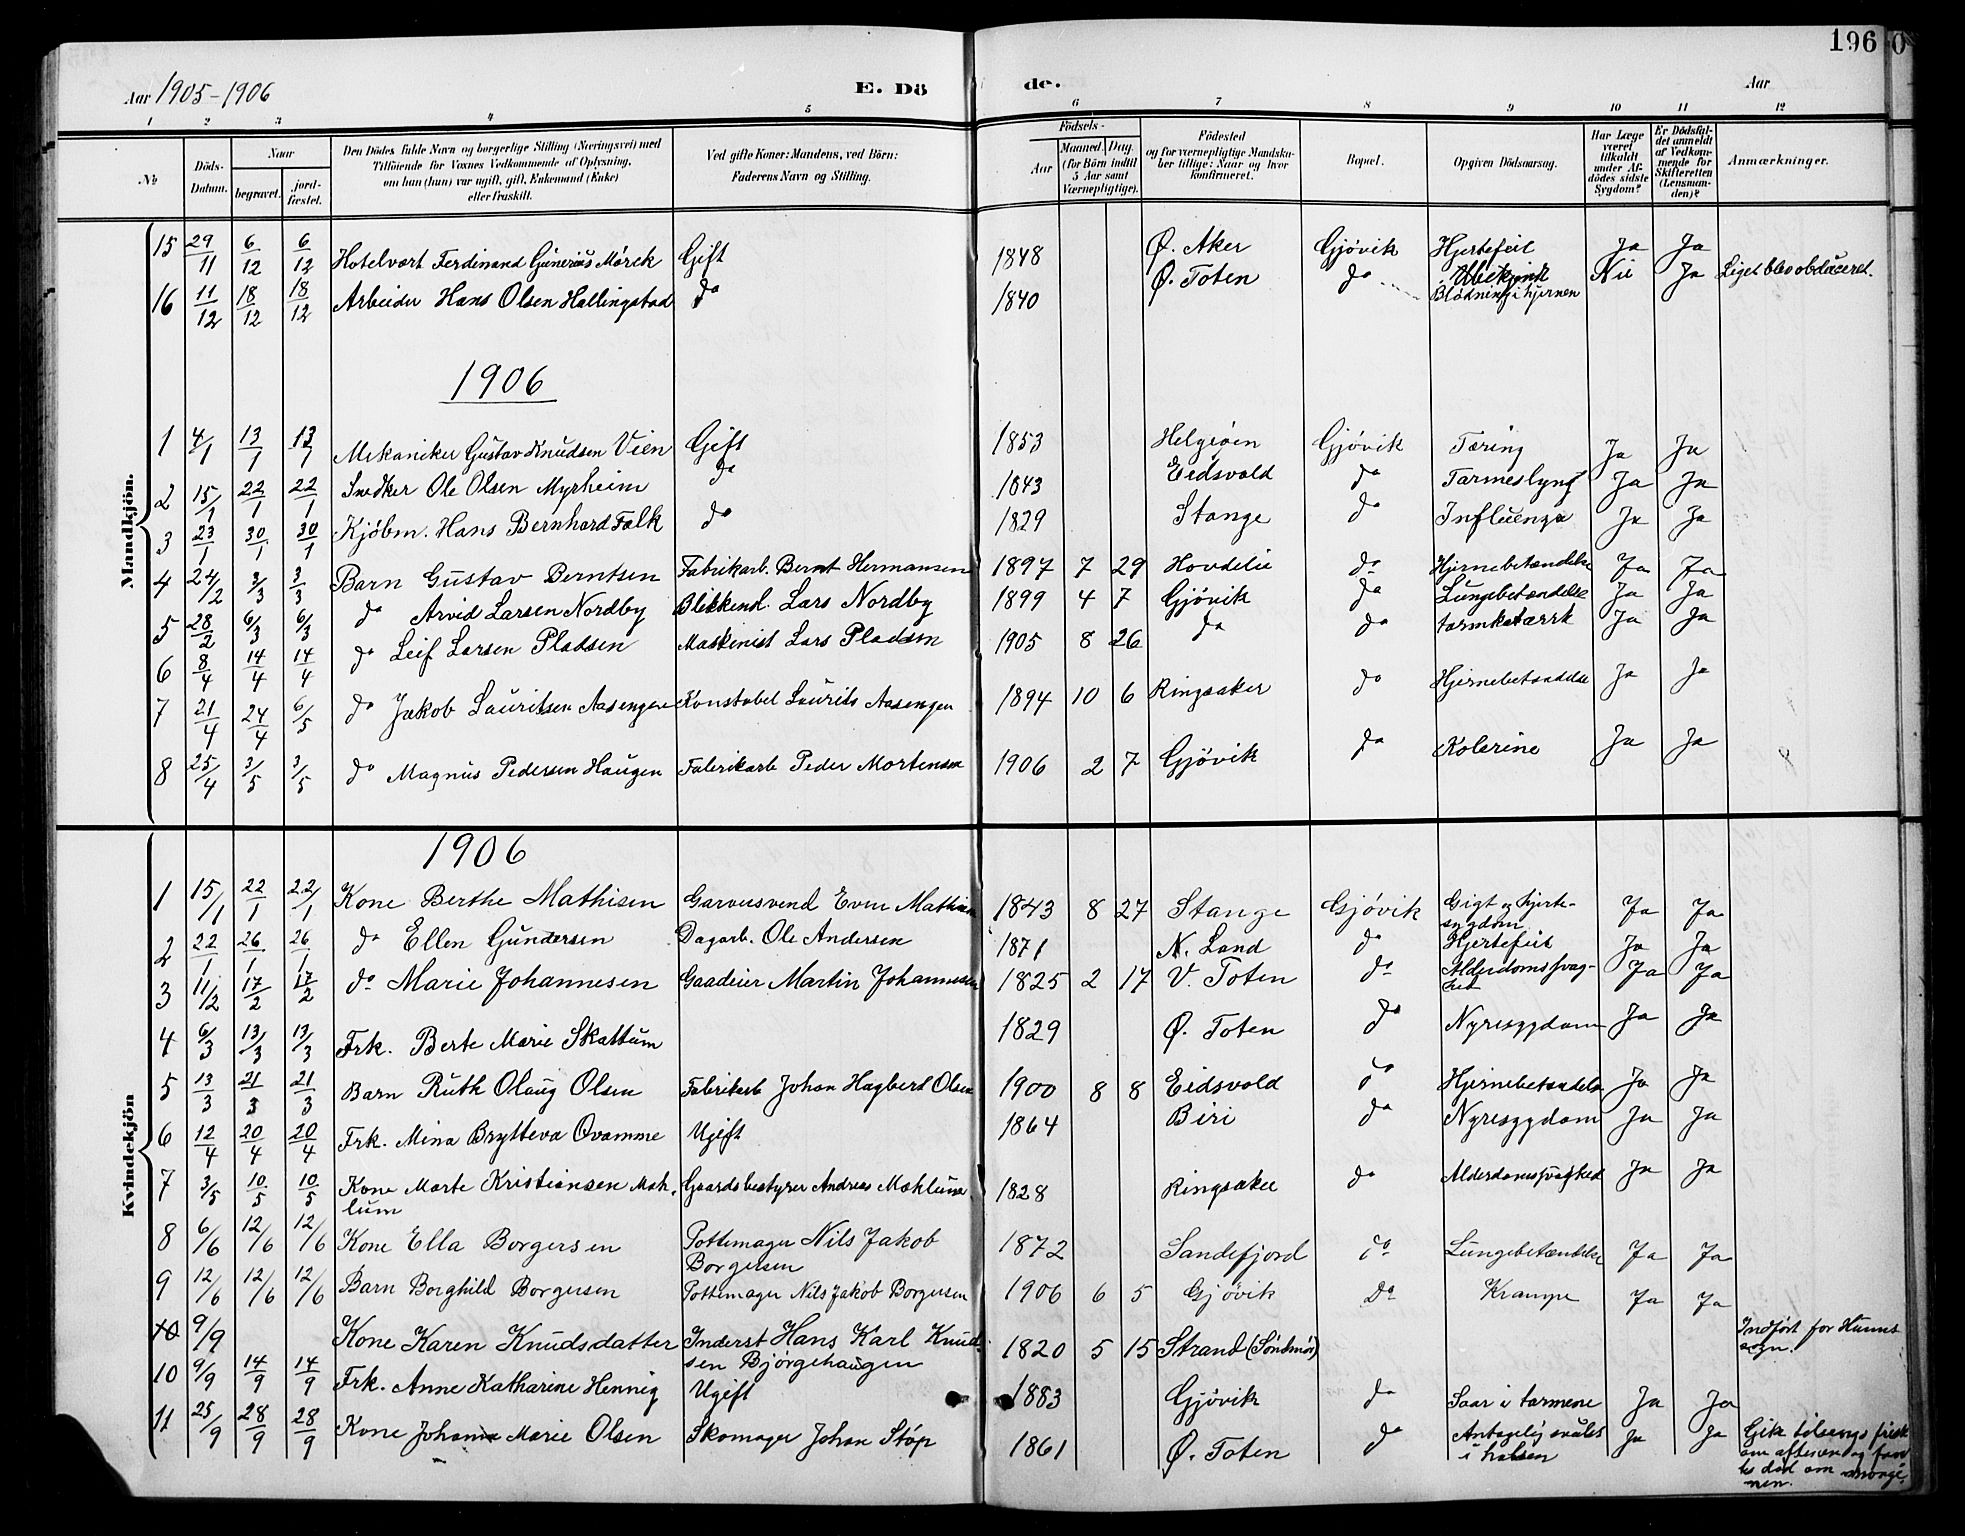 196
Aar 1905-1906 E. Dö de. Aar
1 2 3 4 5 6 7 8 9 10 11 12
No Döds-Datum. Naar begravet. jordfæstet. Den Dödes fulde Navn og borgerlige Stilling (Næringsvei) med Tilföiende for Voxnes Vedkommende af Oplysning, om han (hun) var ugift, gift, Enkemand (Enke) eller fraskilt. Ved gifte Koner: Mandens, ved Börn: Faderens Navn og Stilling. Födsels- Aar Maaned. Dag. (for Börn indtil 5 Aar samt Værnepligtige). Födested og for værnepligtige Mandskaber tillige: Naar og hvor konfirmeret. Bopæl. Opgiven Dödsaarsag. Har Læge været tilkaldt under Afdödes sidste Sygdom? Er Dödsfaldet anmeldt af Vedkommende for Skifteretten (Lensmanden)? Anmærkninger.
Mandkjön.
15 29/11 6/12 6/12 Hotelvært Ferdinand Gunerius Mörck Gift 1848 Ø. Aker Gjövik Hjertefeil Ja Ja
16 11/12 18/12 18/12 Arbeider Hans Olsen Hallingstad do 1840 Ø. Toten do Ubekjendt Blödning i hjernen Nei Ja Liget blev obduceret.
1906
1 4/1 13/1 13/1 Mekaniker Gustav Knudsen Vien Gift 1853 Helgeöen Gjövik Tæring Ja Ja
2 15/1 22/1 22/1 Snedker Ole Olsen Myrheim do 1843 Eidsvold do Tarmeslyng Ja Ja
3 23/1 30/1 30/1 Kjöbm. Hans Bernhard Falk do 1829 Stange do Influenza Ja Ja
4 24/2 3/3 3/3 Barn Gustav Berntsen Fabrikarb. Bernt Hermansen 1897 7 29 Hovdelie do Hjernebetændelse Ja Ja
5 28/2 6/3 6/3 do Arvid Larsen Nordby Blikkensl. Lars Nordby 1899 4 7 Gjövik do Lungebetændelse Ja Ja
6 8/4 14/4 14/4 do Leif Larsen Pladsen Maskenist Lars Pladsen 1905 8 26 do do tarmkatarrk Ja Ja
7 21/4 24/4 6/5 do Jakob Lauritsen Aasengen Konstabel Laurits Aasengen 1894 10 6 Ringsaker do Hjernebetændelse Ja Ja
8 25/4 3/5 3/5 do Magnus Pedersen Haugen Fabrikarb Peder Mortensen 1906 2 7 Gjövik do Kolerine Ja Ja
Kvindekjön
1906
1 15/1 22/1 22/1 Kone Berthe Mathisen Garversvend Even Mathisen 1843 8 27 Stange Gjövik Gigt og hjertesygdom Ja Ja
2 22/1 26/1 26/1 do Ellen Gundersen Dagarb. Ole Andersen 1871 N. Land do Hjertefeil Ja Ja
3 11/2 17/2 17/2 do Marie Johannesen Gaadeier Martin Johannesen 1825 2 17 V. Toten do Alderdomssvaghet Ja Ja
4 6/3 13/3 13/3 Frk. Berte Marie Skattum 1829 Ø. Toten do Nyresygdom Ja Ja
5 13/3 21/3 21/3 Barn Ruth Olaug Olsen Fabrikarb Johan Hagbert Olsen 1900 8 8 Eidsvold do Hjernebetændelse Ja Ja
6 12/4 20/4 20/4 Frk. Mina Brytteva Qvamme Ugift 1864 Biri do Nyresygdom Ja Ja
7 3/5 10/5 10/5 Kone Marte Kristiansen Mæhlum Gaardsbestyrer Andreas Mæhlum 1828 Ringsaker do Alderdomssvaghed Ja Ja
8 6/6 12/6 12/6 Kone Ella Borgersen Pottemager Nils Jakob Borgersen 1872 Sandefjord do Lungebetændelse Ja Ja
9 12/6 12/6 12/6 Barn Borghild Borgersen Pottemager Nils Jakob Borgersen 1906 6 5 Gjövik Do Krampe Ja Ja
10 9/9 Kone Karen Knudsdatter Inderst Hans Karl Knudsen Bjørgehaugen 1820 5 15 Strand (Søndmör) Indført for Hunns sogn.
10 9/9 14/9 14/9 Frk. Anne Katharine Hennig Ugift 1883 Gjövik do Saar i tarmene Ja Ja
11 25/9 28/9 28/9 Kone Johanne Marie Olsen Skomager Johan Støp 1861 Ø. Toten do Antagelig kvalt i halsen Ja Ja Gik tilsengs frisk om aftenen og fantes død om morgenen.